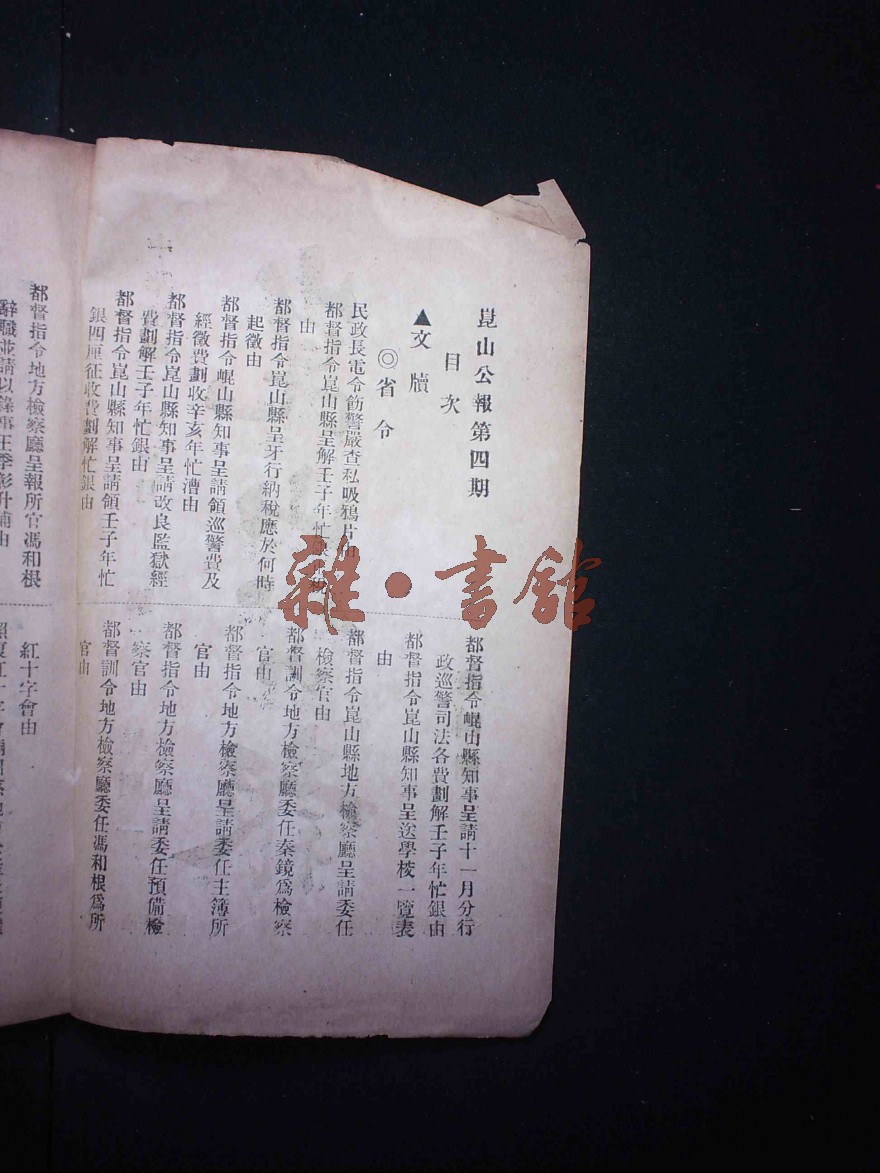 崑山公報第四期
目次
▲文牘
◎省令
民政長電令飭警嚴查私吸鴉片由
都督指令崑山縣呈解壬子年忙
由
都督指令崑山縣呈牙行納稅應於何時
起徵由
都督指令崐山縣知事呈請領巡警費及
經徵費劃收辛亥年忙漕由
都督指令崑山縣知事呈請改良監獄經
費劃解壬子年忙銀由
都督指令崑山縣知事呈請領壬子年忙
銀四厘征收費劃解忙銀由
都督指令地方檢察廳呈報所官馮和根
辭職並請以錄事王季彭升補由
都督指令崐山縣知事呈請十一月分行
政巡警司法各費劃解壬子年忙銀由
都督指令崑山縣知事呈送學校一覽表
由
都督指令崑山縣地方檢察廳呈請委任
檢察官由
都督訓令地方檢察廳委任秦鏡爲檢察
官由
都督指令地方檢察廳呈請委任主簿所
官由
都督指令地方檢察廳呈請委任預備檢
察官由
都督訓令地方檢察廳委任馮和根爲所
官由
紅十字會由
雜·書館